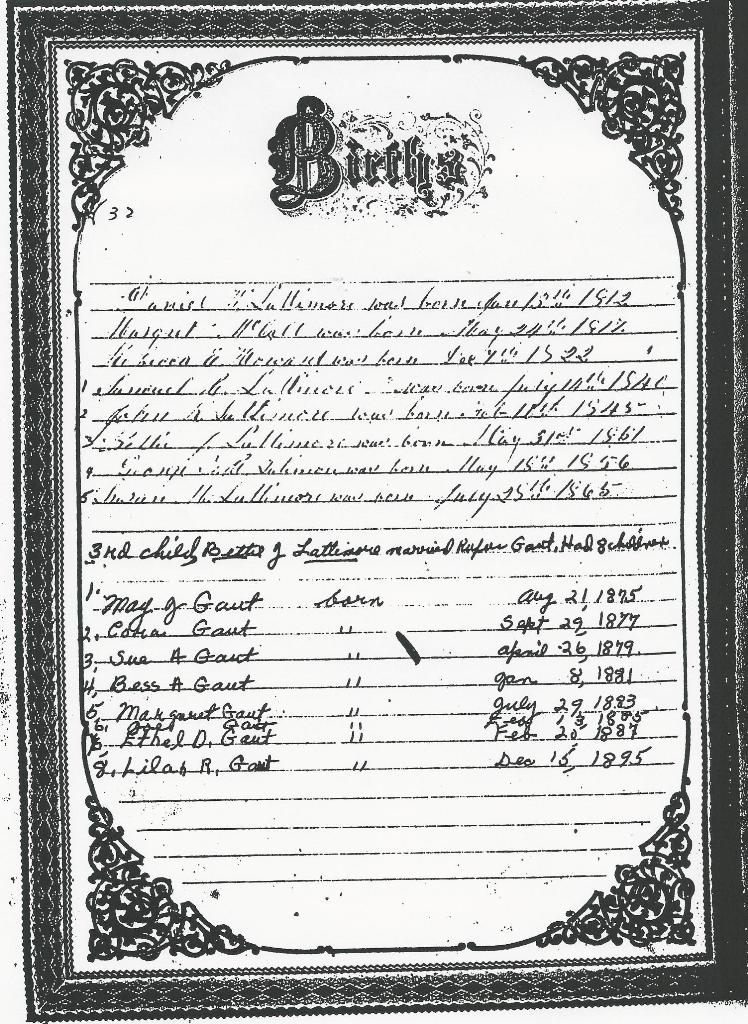 Births
32
Daniel Lattimore was born Jan 13th 1812
Margret McCall was born May 24th 1817
Howard was born Dec 1822
1 Samuel Lattimore was born July 14th
2 John Lattimore was born 18th 1845
3 Bettie J Lattimore was born May 31st 1851
4 Lattimore was born May 15th 1856
5 Lattimore was born July 25th 1865
3rd child, Bettie J Lattimore married Rufus Gant, Had 8 children
1. May J Gant born Aug 21, 1875
2, Cora Gant " Sept 29, 1877
3, Sue A Gant " april 26, 1879
4, Bess A Gant " Jan 8, 1881
5, Margaret Gant " July 29, 1883
6, Gant " Feb 13, 1885
Ethel D, Gant " Feb 20, 1887
8, Lilas R, Gant " Dec 15, 1895